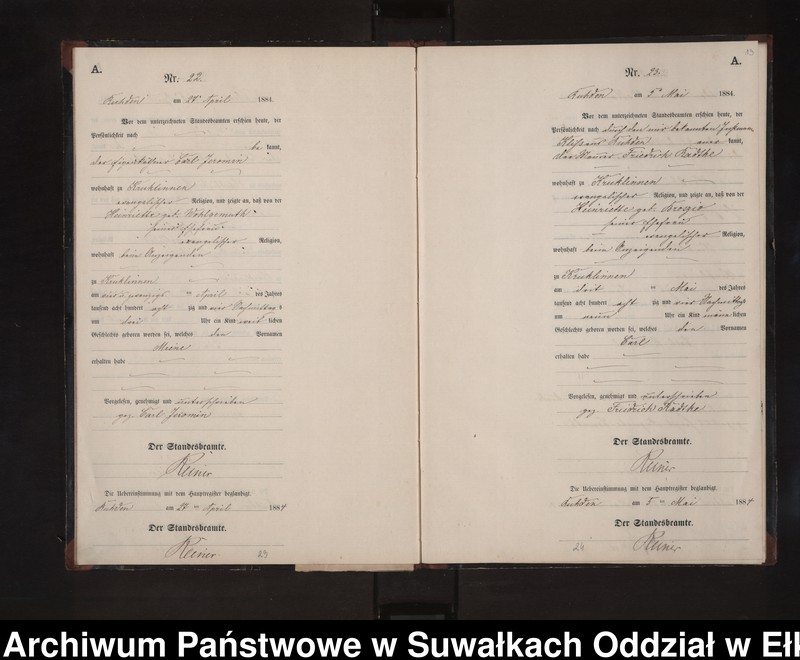 A.
Nr. 22.
am 28 April 1884.
Vor dem unterzeichneten Standesbeamten erschien heute, der
Persönlichkeit nach
be kannt,
Carl Jeromin
wohnhaft zu Kruklinnen
evangelischer Religion, und zeigte an, daß von der
Henriette geb. Wohlgemuth
seiner Ehefrau
evangelischer Religion,
wohnhaft beim Anzeigenden
zu Kruklinnen
am April des Jahres
tausend acht hundert acht zig und vier Nachmittags
um drei Uhr ein Kind weib lichen
Geschlechts geboren worden sei, welches den Vornamen
erhalten habe
Vorgelesen, genehmigt und unterschrieben
gez. Carl Jeromin
Der Standesbeamte.
Reiner
Die Uebereinstimmung mit dem Hauptregister beglaubigt.
am 28 ten April 1884
Der Standesbeamte.
Reiner
23
A.
Nr. 23.
am 5 Mai 1884.
Vor dem unterzeichneten Standesbeamten erschien heute, der
Persönlichkeit nach durch den
kannt,
Friedrich Radtke
wohnhaft zu Kruklinnen
evangelischer Religion, und zeigte an, daß von der
Henriette geb. Brozio
seiner Ehefrau
evangelischer Religion,
wohnhaft beim Anzeigenden
zu Kruklinnen
am Mai des Jahres
tausend acht hundert acht zig und vier Nachmittags
um neun Uhr ein Kind männ lichen
Geschlechts geboren worden sei, welches den Vornamen
Carl
erhalten habe
Vorgelesen, genehmigt und unterschrieben
gez. Friedrich Radtke
Der Standesbeamte.
Reiner
Die Uebereinstimmung mit dem Hauptregister beglaubigt.
am 5 ten Mai 1884
Der Standesbeamte.
Reiner
24
Archiwum Państwowe w Suwałkach Oddział w Ełk